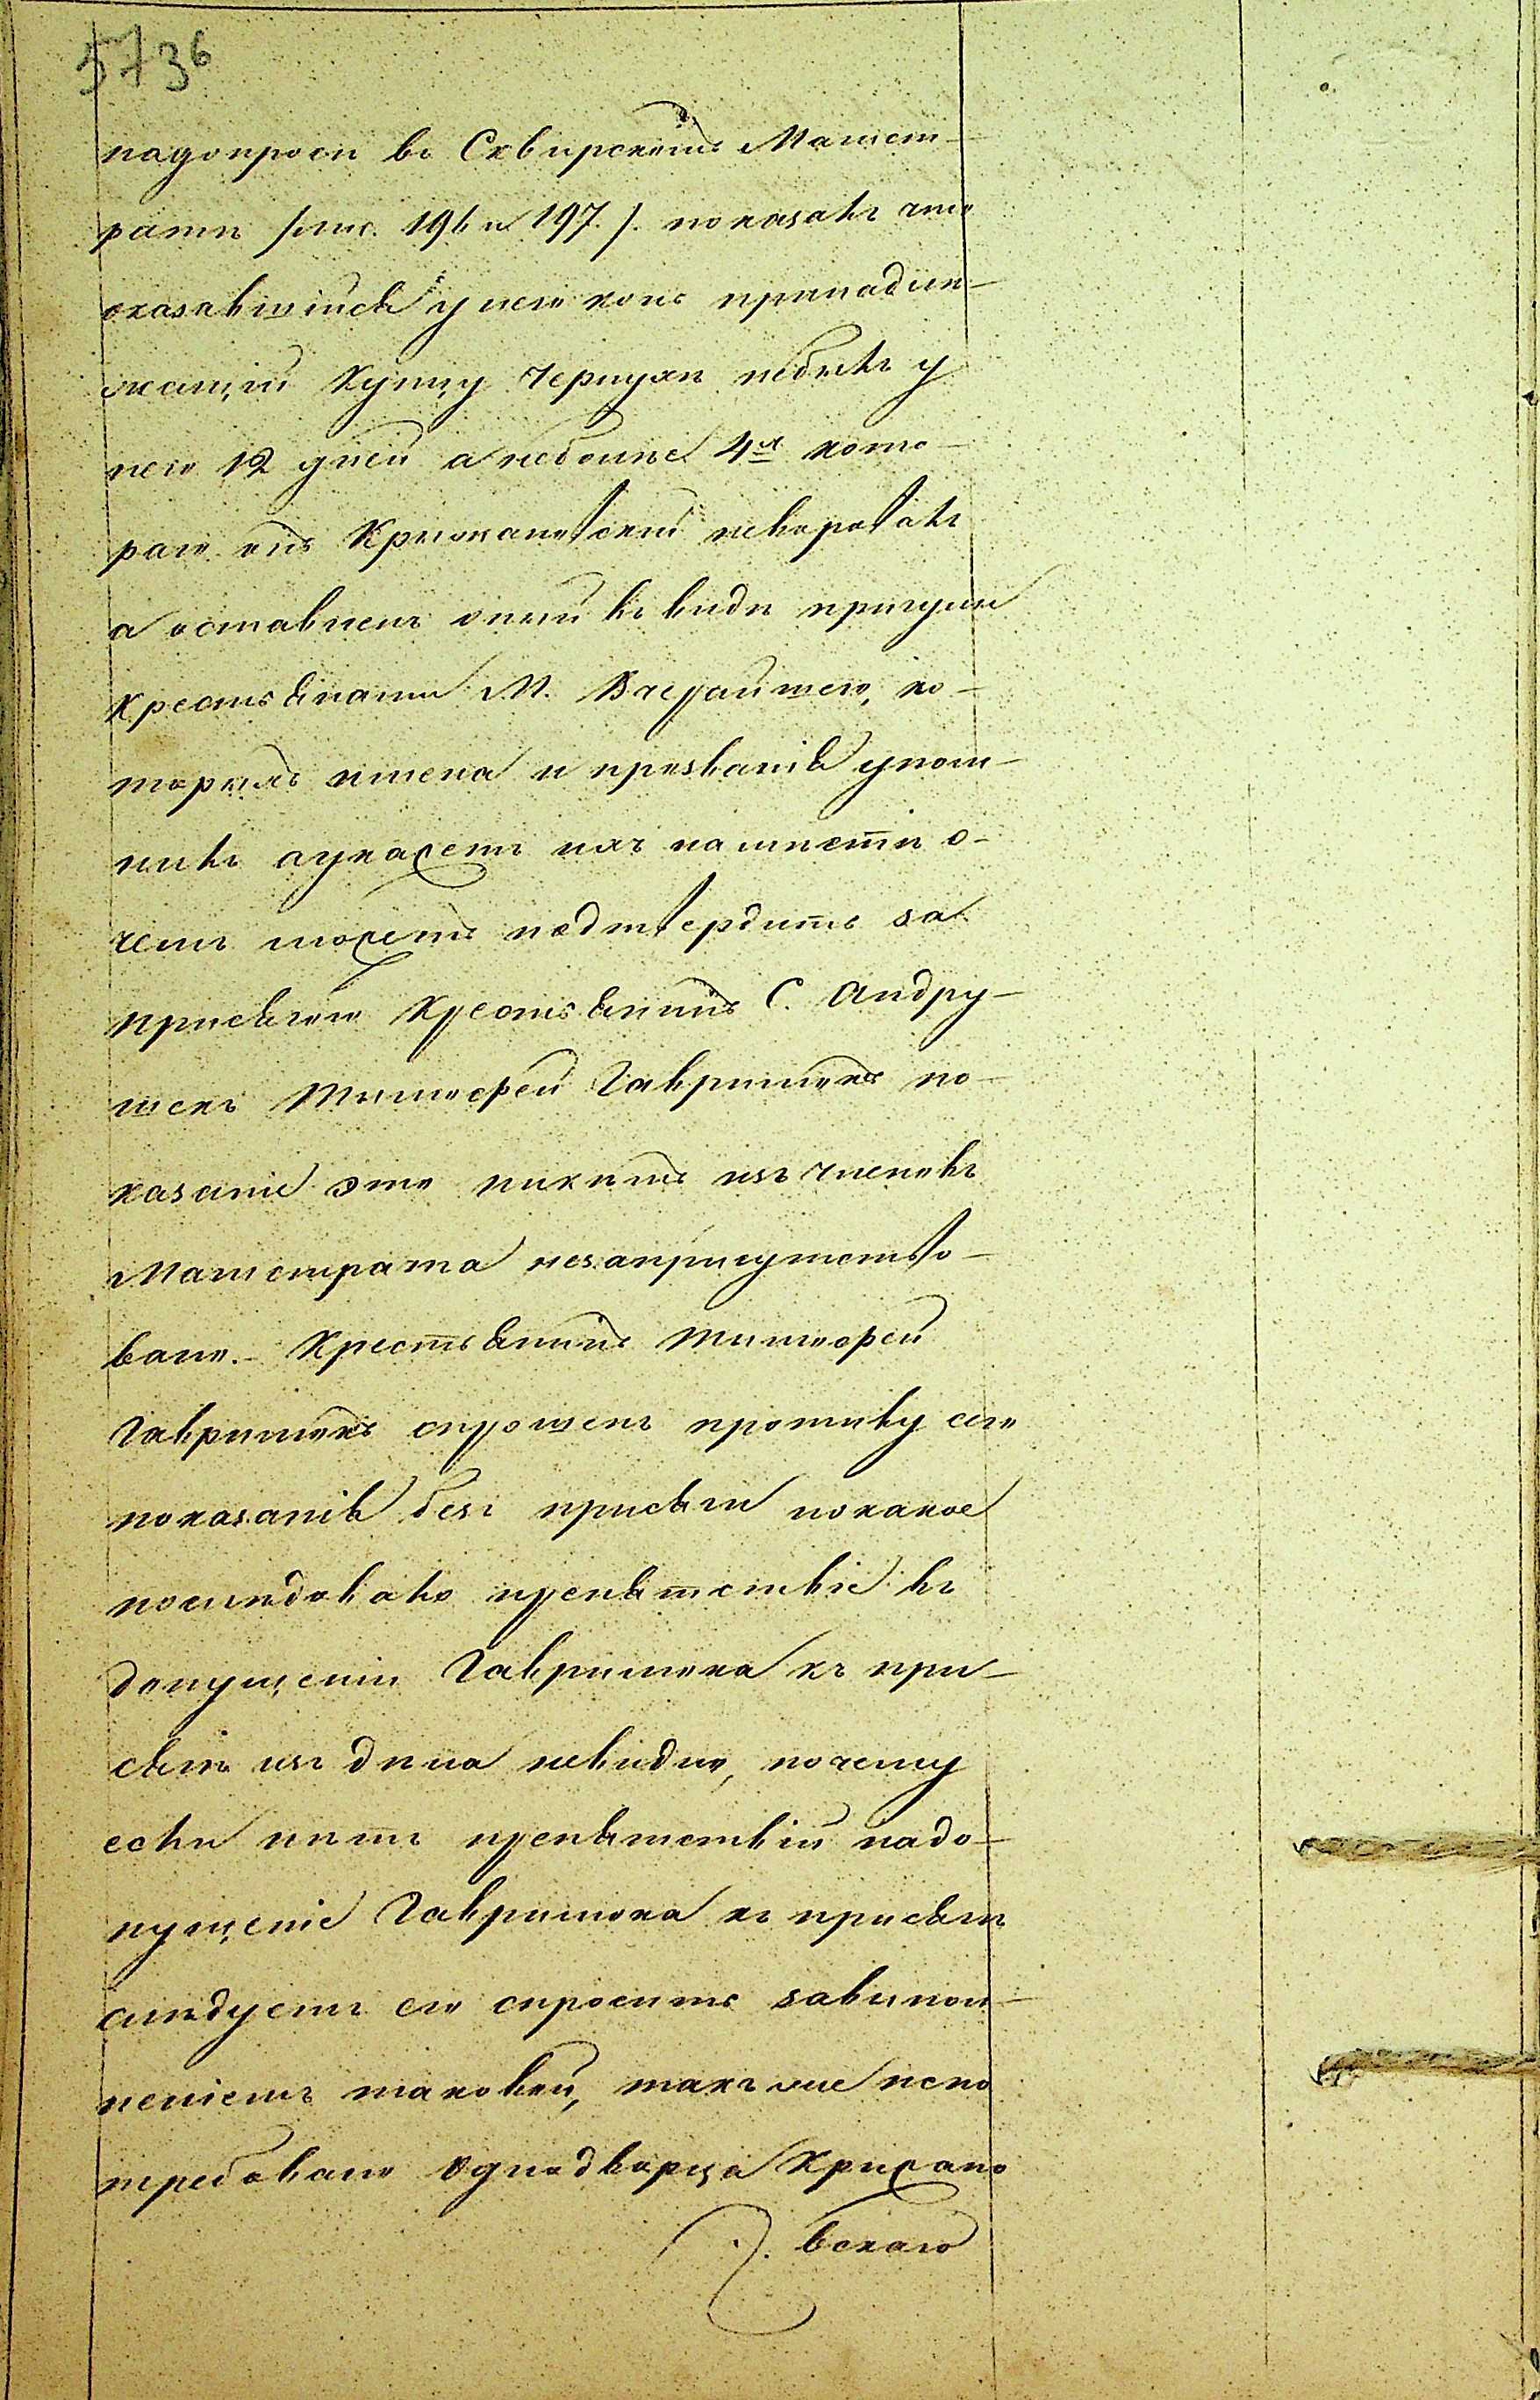 5736
надопросѣ въ Сквирскомъ Магист-
ратѣ /лис. 196 и 197./. показалъ что
оказавшійся у него конь принадле-
жащій Купцу Чернухѣ небылъ у
него 12 дней а неболѣе 4х кото-
раго онъ Крижановскій некоровалъ
а оставленъ оный въ видѣ пригула
крестьянами М. Вчерайшего, ко-
торыхъ имена и прозванія упом-
нилъ аукажетъ ихъ намѣстѣ о-
чемъ можетъ подтвердить за
присягою Крестьянинъ С. Андру-
шекъ Тимофей Гавришокъ по-
казаніе это никѣмъ изъ членовъ
Магистрата незаприсутство-
вано. Крестьянинъ Тимофей
Гавришокъ спрошенъ противу сего
показанія безъ присяги покакое
последовало препятствіе въ
допущеніи Гавришока къ при-
сягѣ изъ дѣла невидно, почему
если нѣтъ препятствій надо-
пущеніе Гавришока къ присягѣ
слѣдуетъ его спросить завыпол-
неніемъ таковой, такъ же непо
требовано Однодворца Крижано
вскаго